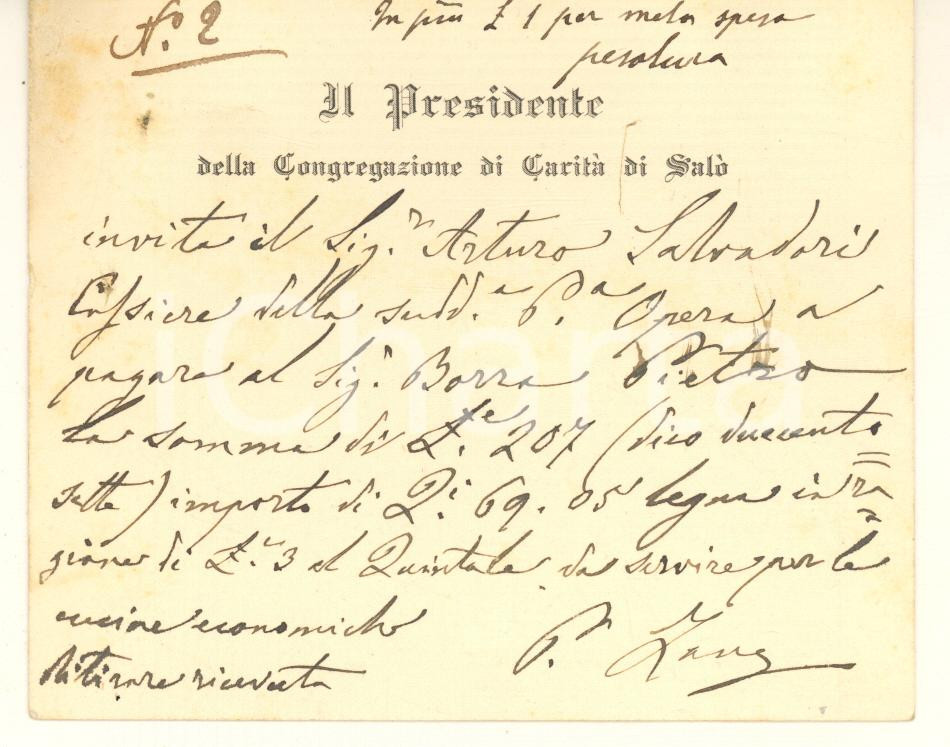 N.º 2
In più £ 1 per metà spesa
pesatura
Il Presidente
della Congregazione di Carità di Salò
invita il Sig.r Arturo Salvadori
Cassiere della sudd.a P.a Opera a
pagare al Sig. Borra Pietro
la somma di L.e 207 (dico duecento
sette) importo di Q.i 69.05 legna in ra
gione di L. 3 al Quintale da servire per le
cucine economiche
P.
Ritirare ricevuta
iCharta